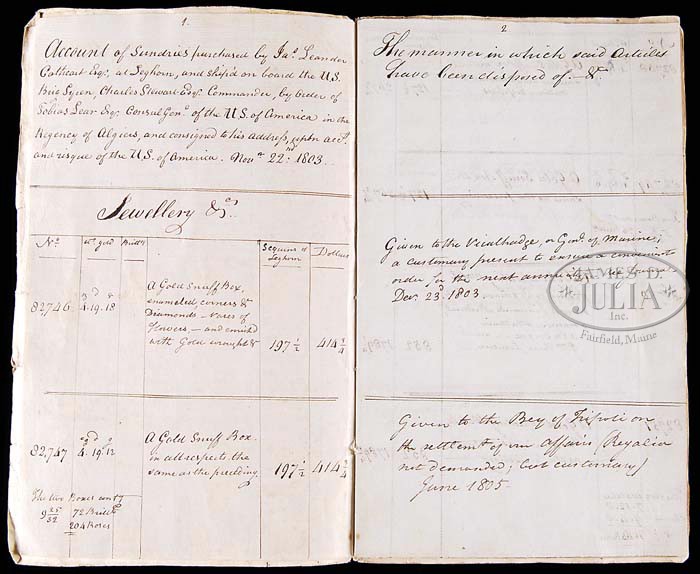 1.
Account of Sundries purchased by Jas. Leander
Cathcart Esqr, at Leghorn, and ship'd on board the U.S.
Brig Syren, Charles Stewart Esqr. Commander, by order of
Tobias Lear Esqr. Consul Genl. of the U.S. of America in the
Regency of Algiers, and consigned to his Address, upon acct.
and risque of the U.S. of America. Novr. 22nd. 1803.
Jewellery &c.
No. wt. gold Brillts Sequins of Leghorn Dollars
82746 4. 19. 18
A Gold Snuff Box,
enameled corners &
Diamonds – Vases of
Flowers, – and enrichd
with Gold wrought &
197 1/2 414 3/4
82,747 4. 19. 12
A Gold Snuff Box
in all respects the
same as the preceding.
197 1/2 414 3/4
The two Boxes cont
9 25/32 72 Brillts
204 Roses
2
The manner in which said Articles
have been disposed of. &c.
Given to the Vicalhadge, or Genl. of Marine;
a customary present to ensure a
order for the next
Decr. 23d. 1803.
JAMES D.
JULIA
Inc.
Fairfield, Maine
Given to the Bey of Tripoli on
the settlemt. of our affairs (Regalia
not demanded; but customary)
June 1805